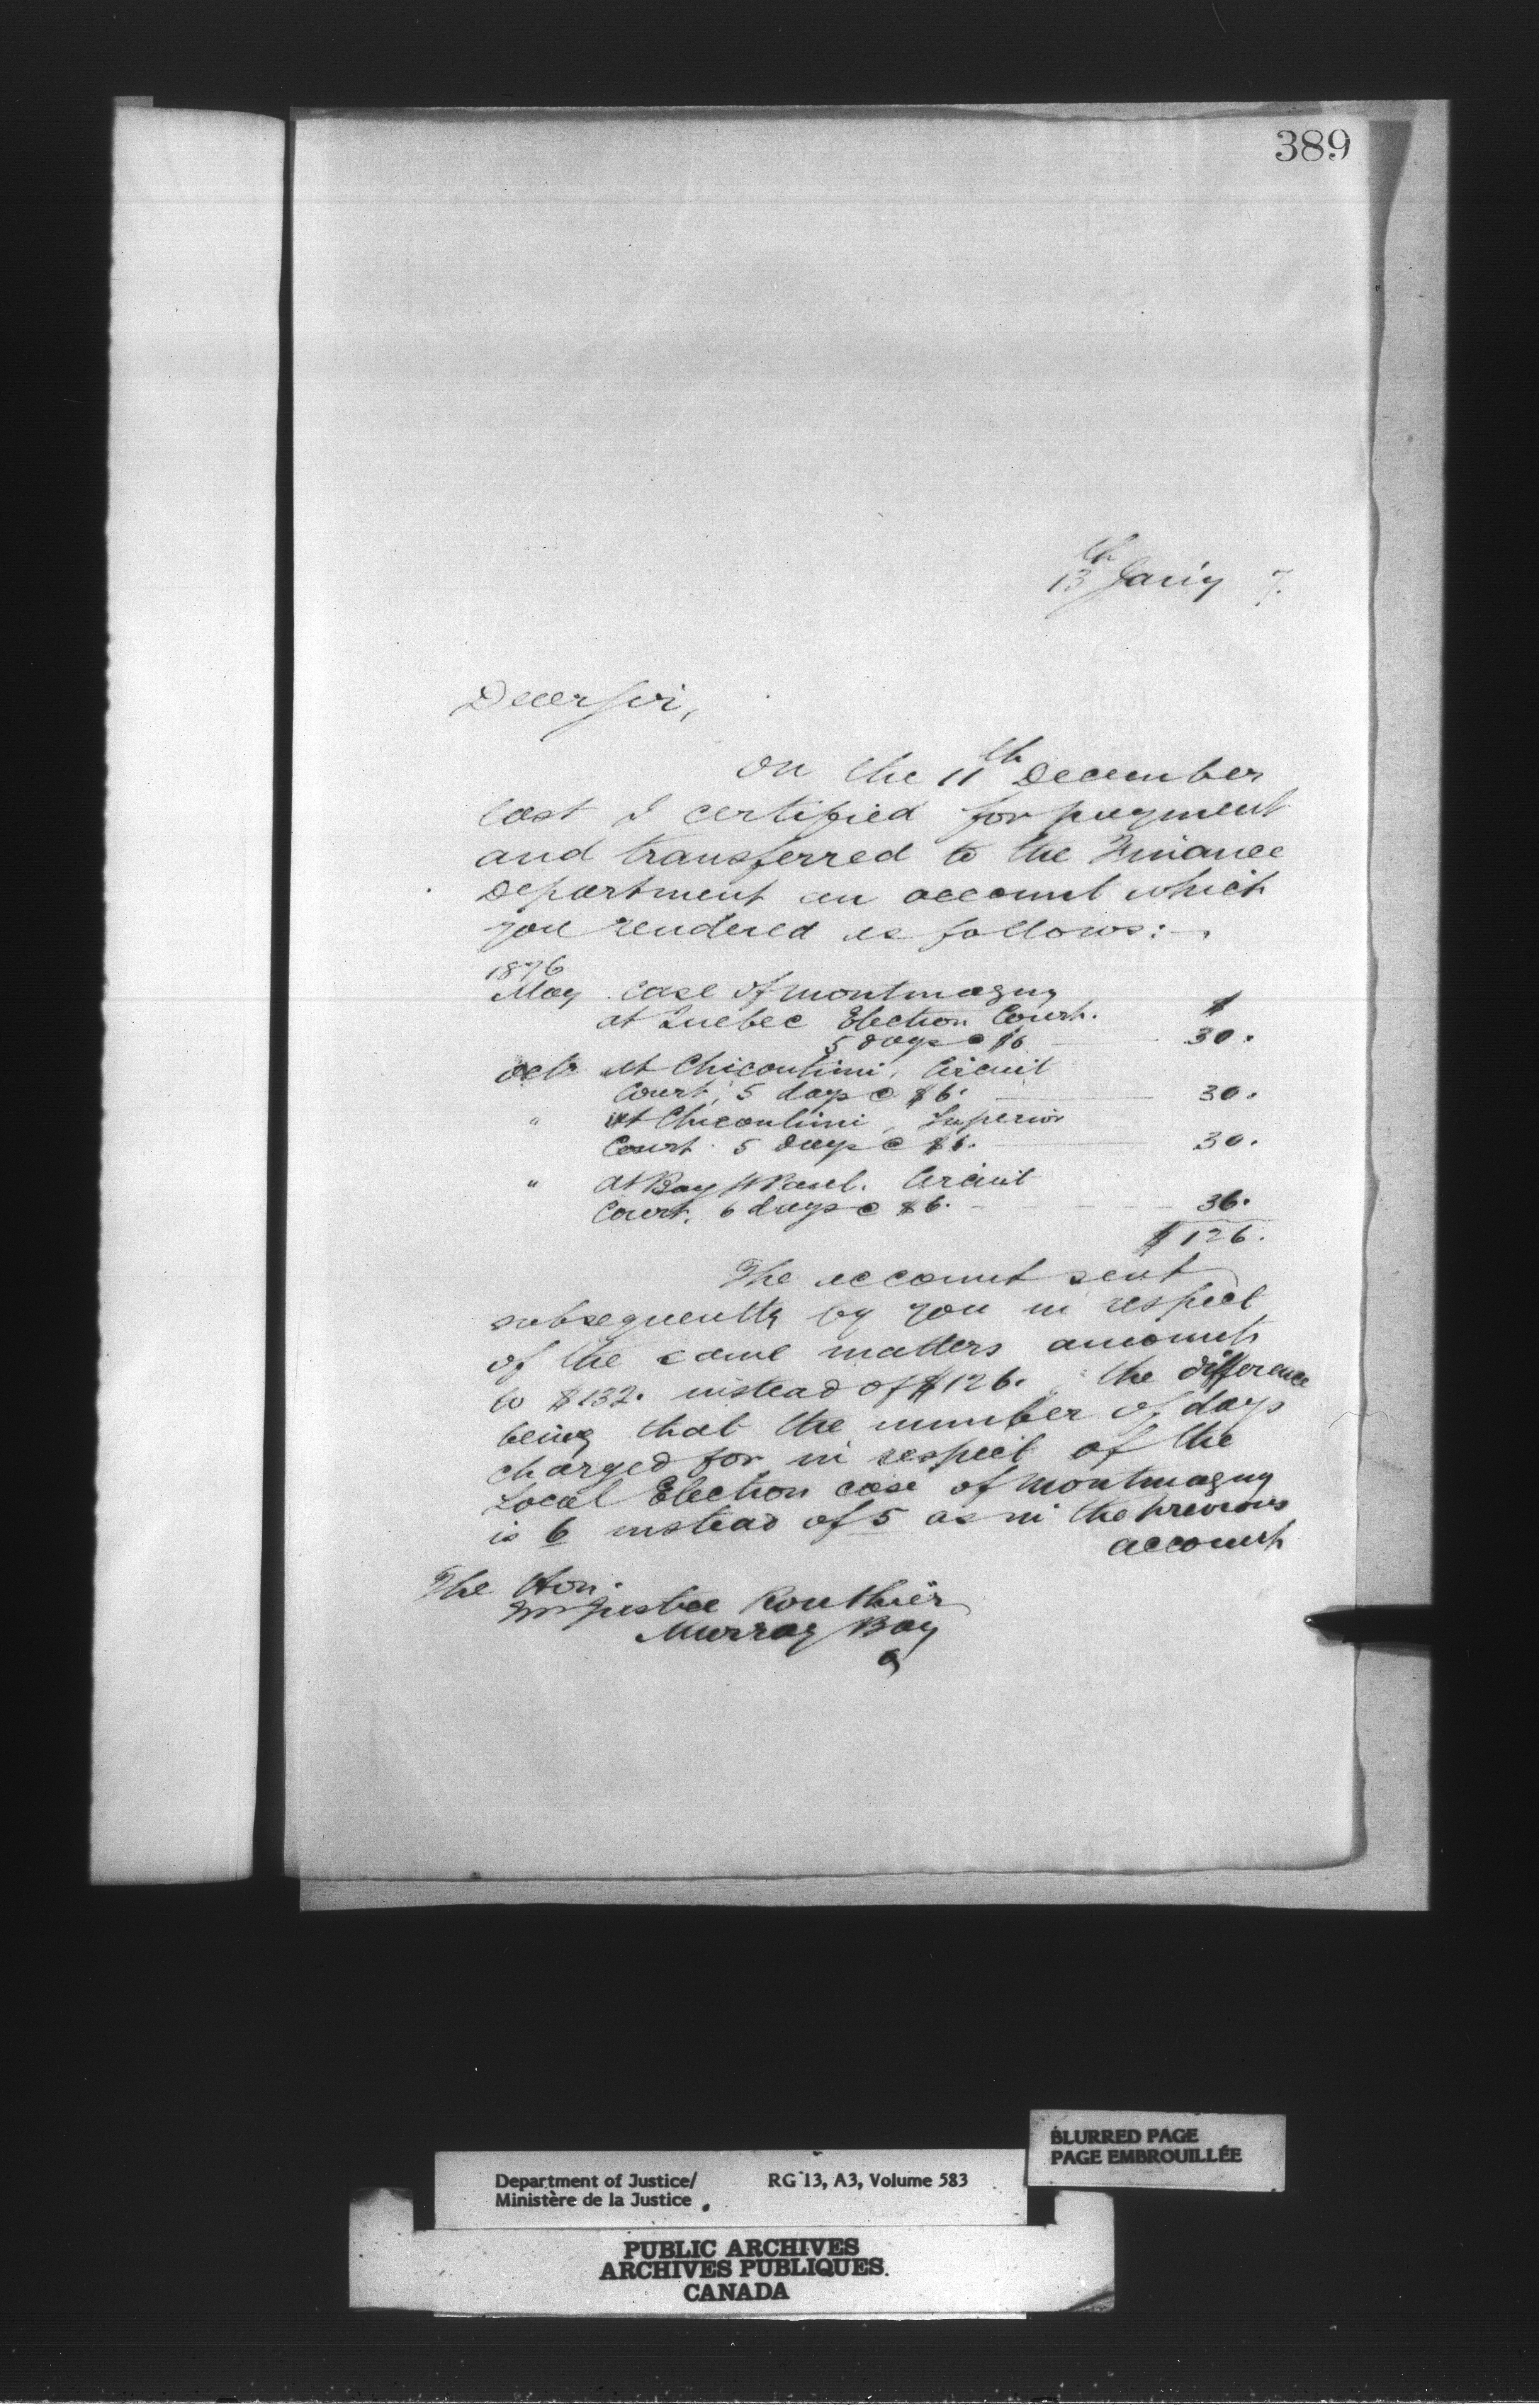 389
13th Jan'y 7.
Dear Sir,
On the 11th December
last I certified for payment
and transferred to the Finance
Department an account which
you rendered as follows:-
1876
May Case of Montmagny
at Quebec Election Court. $
5 days @ $6 30.
Octr At Chicoutimi, Circuit
Court, 5 days @ $6. 30.
" At Chicoutimi, Superior
Court. 5 days @ $6. 30.
" At Bay St Paul. Circuit
Court. 6 days @ $6. 36.
$126.
The account sent
subsequently by you in respect
of the same matters amounts
to $132. instead of $126. the difference
being that the number of days
charged for in respect of the
Local Election case of Montmagny
is 6 instead of 5 as in the previous
account
The Hon.
Mr Justice Routhier
Murray Bay
BLURRED PAGE
PAGE EMBROUILLÉE
Department of Justice/ RG 13, A3, Volume 583
Ministère de la Justice
PUBLIC ARCHIVES
ARCHIVES PUBLIQUES
CANADA